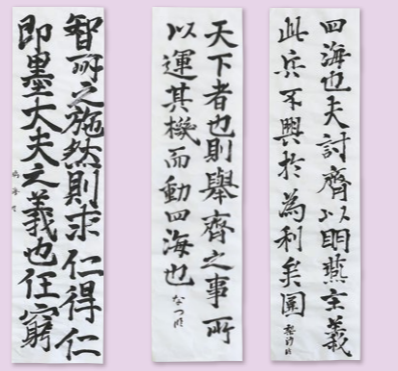 四海也夫討齊以明燕主義
此兵不興於為利矣圍
天下者也則舉齊之事所
以運其機而動四海也
智所之施然則求仁得仁
即墨大夫之義也任窮